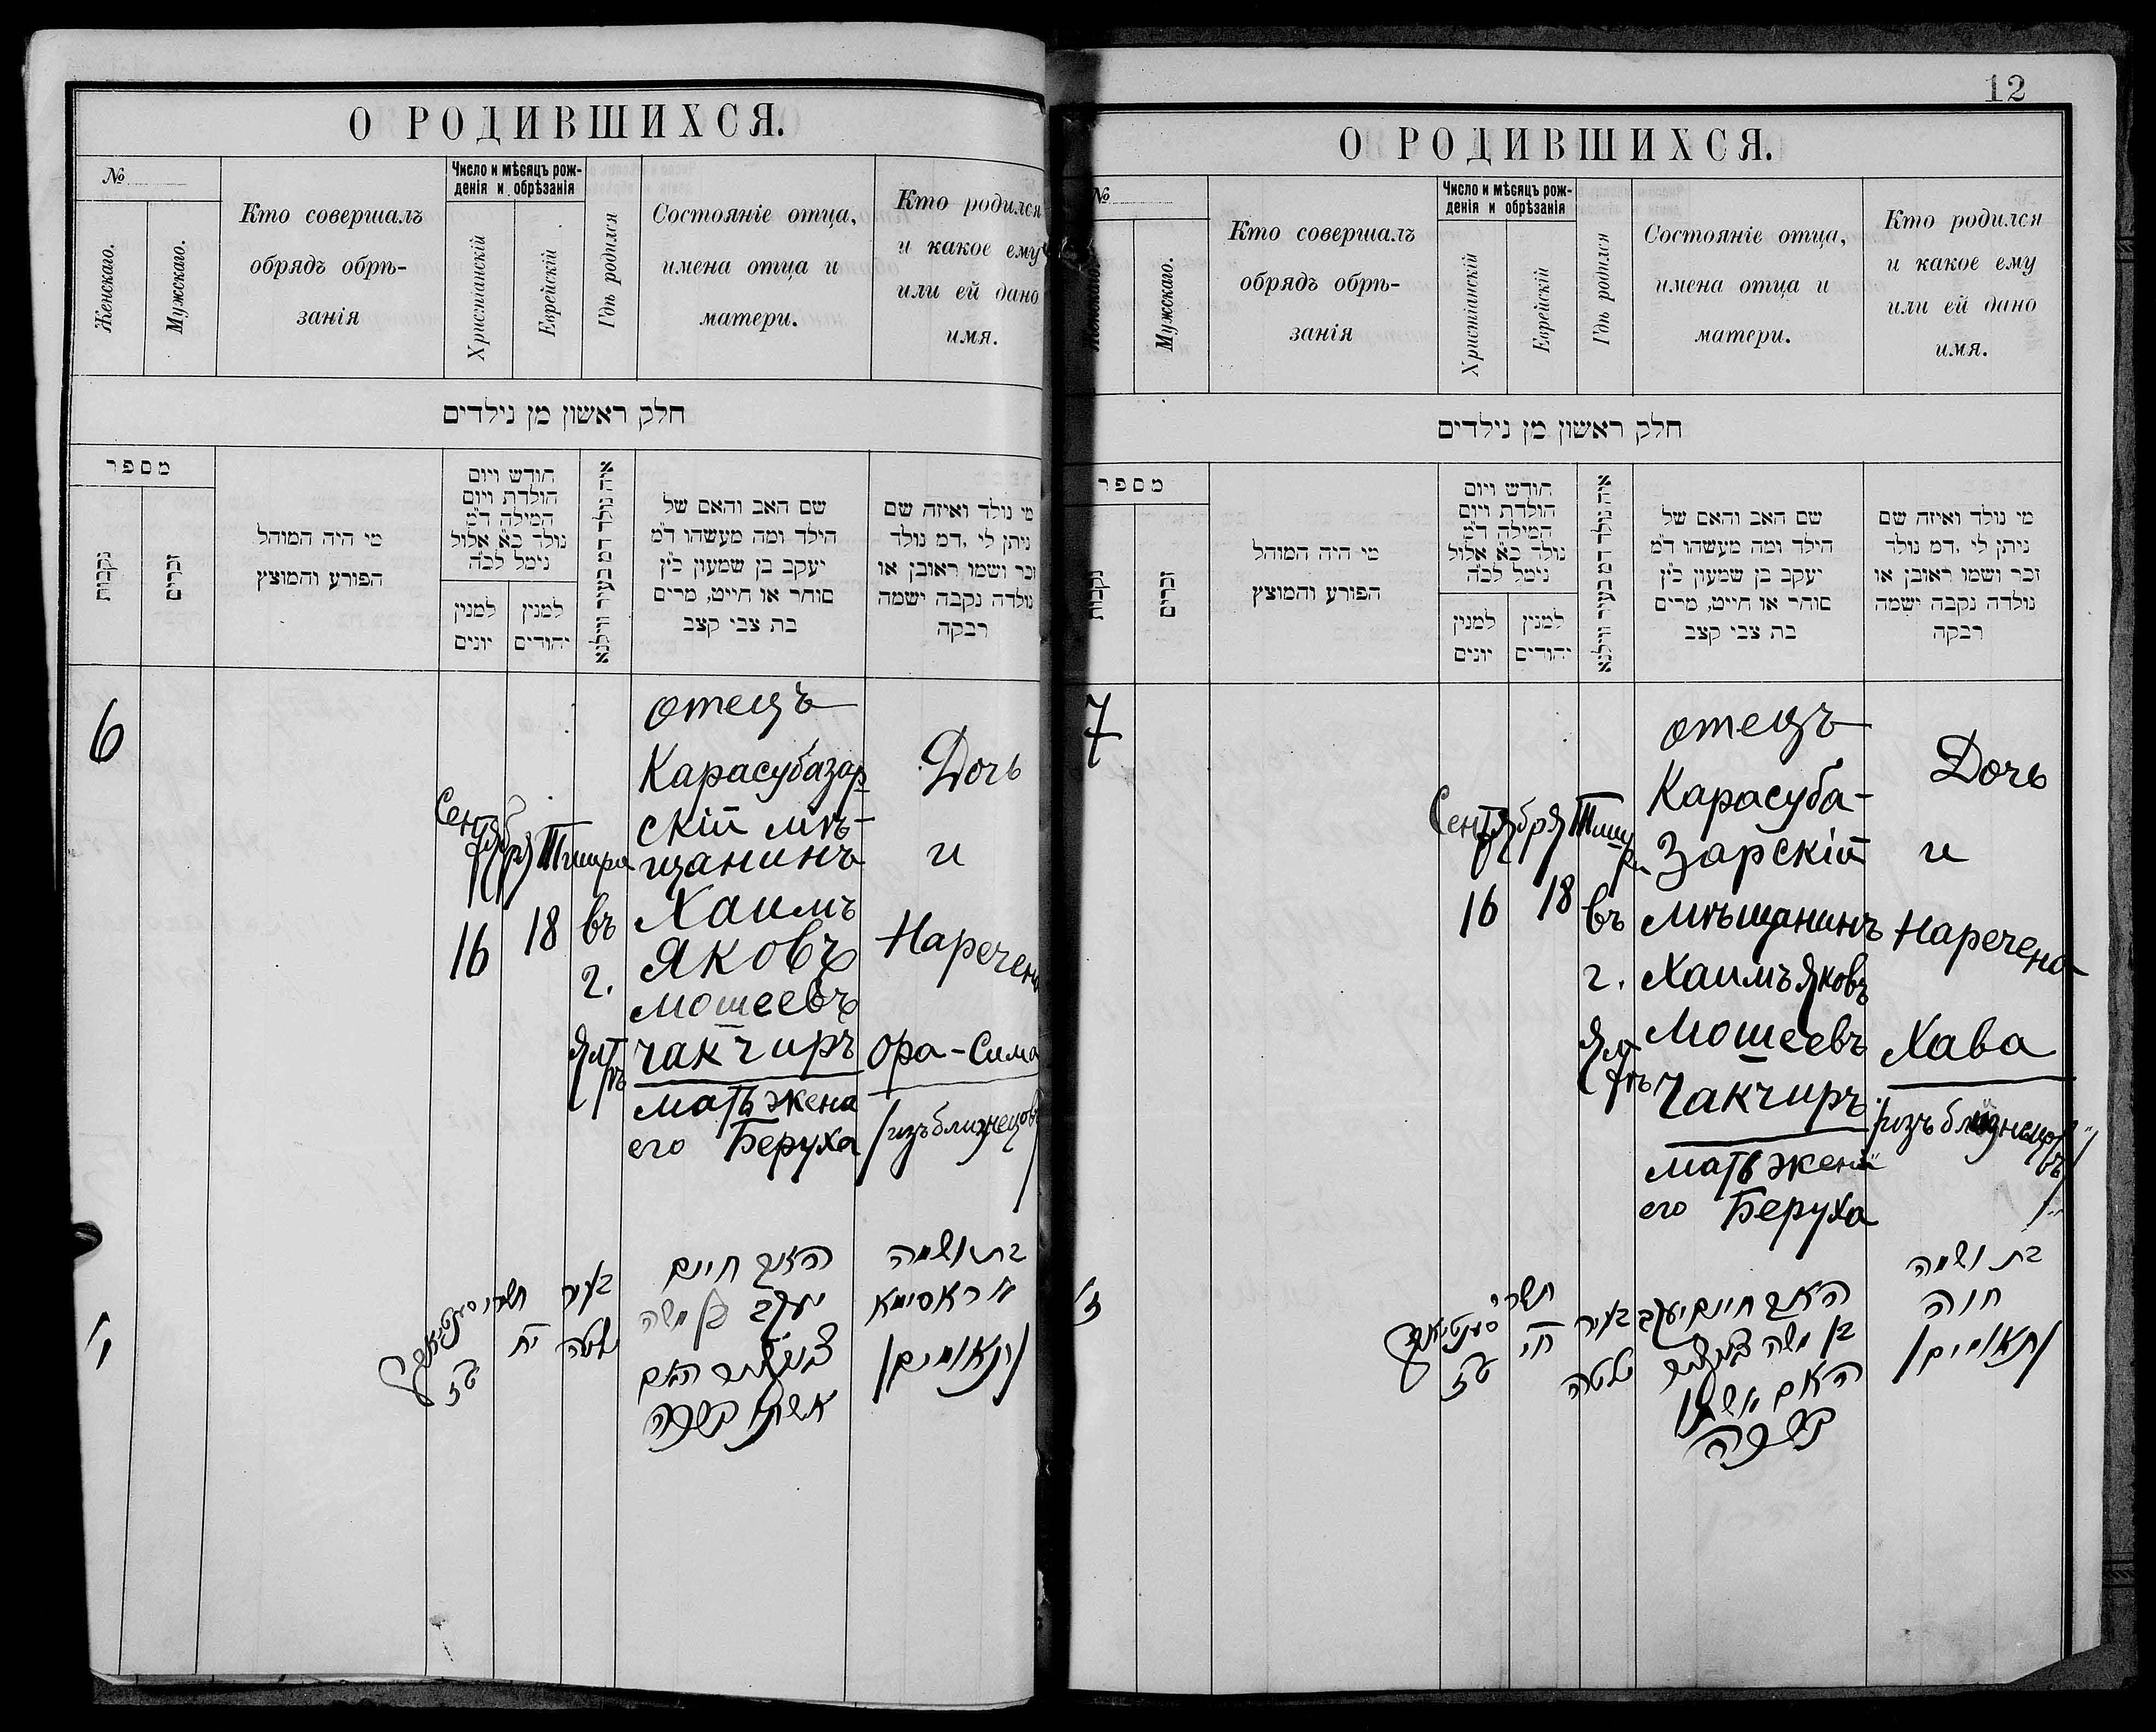 О РОДИВШИХСЯ.
№
Женскаго.
Мужскаго.
Кто совершалъ
обрядъ обрѣ-
занія
Число и мѣсяцъ рож-
денія и обрѣзанія
Христіанскій
Еврейскій
Гдѣ родился
Состояніе отца,
имена отца и
матери.
Кто родился
и какое ему
или ей дано
имя.
חלק ראשון מן נילדים
מספר
נקבות
זכרים
מי היה המוהל
הפורע והמוצץ
חודש ויום
הולדת ויום
המילה ד"מ
נולד כ"א אלול
נימל לכ"ה
למנין
יונים
למנין
יהודים
איה נולד דמ בעיר ווילנא
שם האב והאם של
הילד ומה מעשהו ד"מ
יעקב בן שמעון כ"ץ
סוחר או חייט, מרים
בת צבי קצב
מי נולד ואיזה שם
ניתן לי, דמ נולד
זכר ושמו ראובן או
נולדה נקבה ישמה
רבקה
6
Сентября
16
Тишри
18
въ
г.
Ялтѣ
отецъ
Карасубазар
скій мѣ-
щанинъ
Хаимъ
Яковъ
Мошеевъ
Чакчиръ
мать жена
его Беруха
Дочь
и
Наречена
Ора-Сима
/изъ близнецовъ/
ו'
טז
יח
בעיר
יאלטה
האב חיים
יעקב בן משה
האם
אשתו
בת ושמה
אורה סימא
/תאומים/
12
О РОДИВШИХСЯ.
№
Женскаго.
Мужскаго.
Кто совершалъ
обрядъ обрѣ-
занія
Число и мѣсяцъ рож-
денія и обрѣзанія
Христіанскій
Еврейскій
Гдѣ родился
Состояніе отца,
имена отца и
матери.
Кто родился
и какое ему
или ей дано
имя.
חלק ראשון מן נילדים
מספר
נקבות
זכרים
מי היה המוהל
הפורע והמוצץ
חודש ויום
הולדת ויום
המילה ד"מ
נולד כ"א אלול
נימל לכ"ה
למנין
יונים
למנין
יהודים
איה נולד דמ בעיר ווילנא
שם האב והאם של
הילד ומה מעשהו ד"מ
יעקב בן שמעון כ"ץ
סוחר או חייט, מרים
בת צבי קצב
מי נולד ואיזה שם
ניתן לי, דמ נולד
זכר ושמו ראובן או
נולדה נקבה ישמה
רבקה
7
Сентября
16
Тишри
18
въ
г.
Ялтѣ
отецъ
Карасуба-
зарскій
мѣщанинъ
Хаимъ Яковъ
Мошеевъ
Чакчиръ
мать жена
его Беруха
Дочь
и
Наречена
Хава
/изъ близнецовъ/
ז'
טז
תשרי
חי
בעיר
יאלטה
האב חיים יעקב
בן משה
האם אשתו
בת ושמה
חוה
/תאומים/